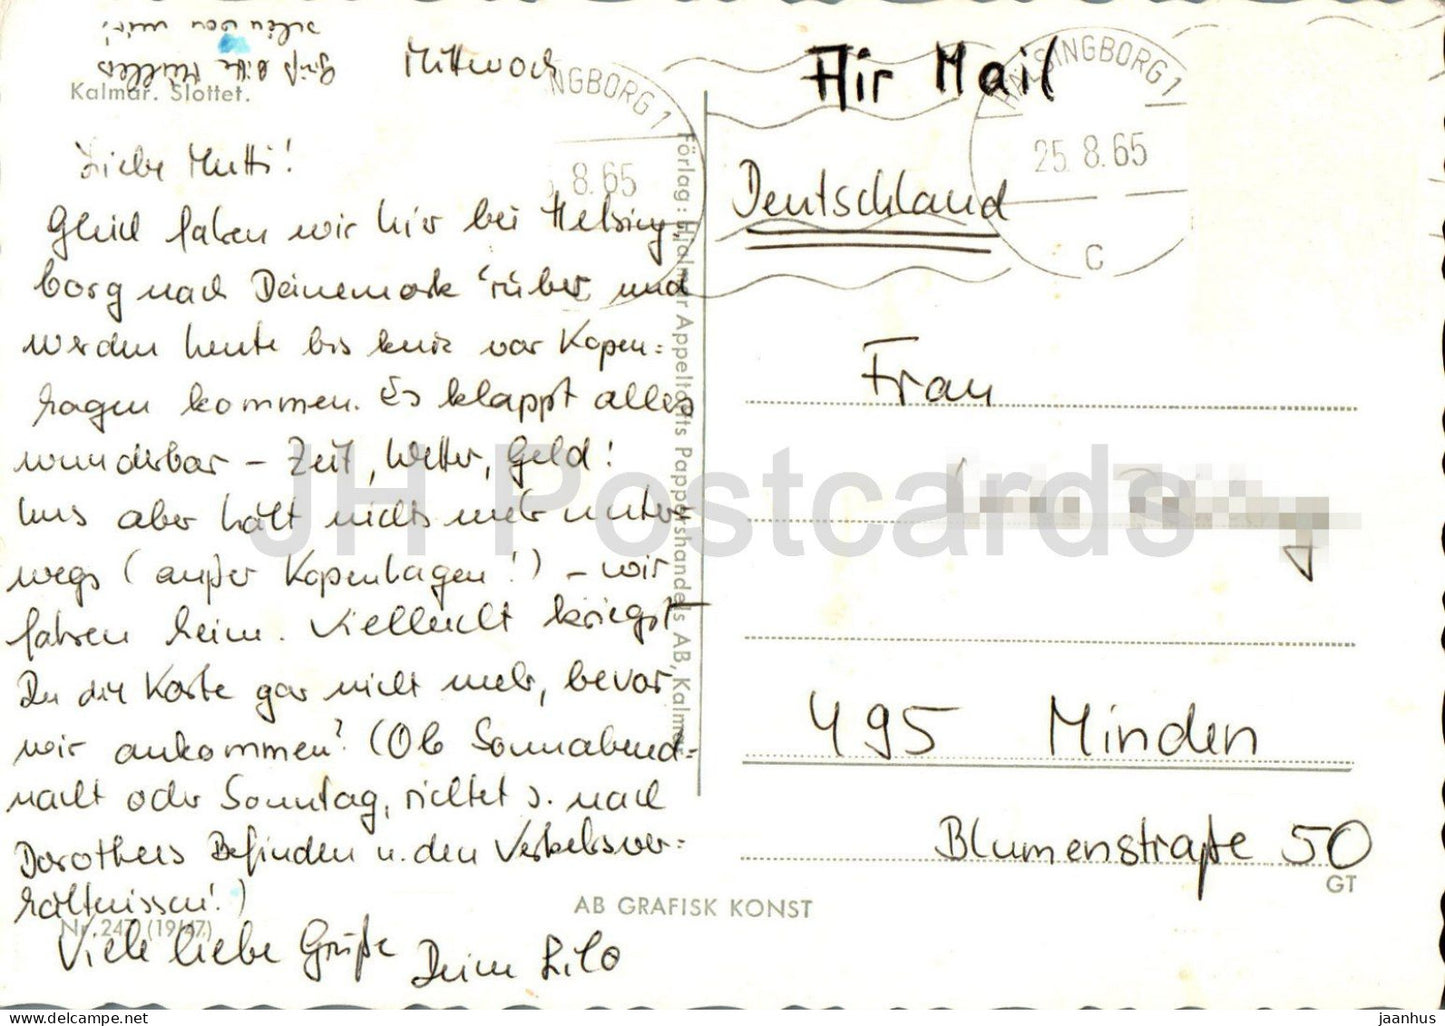 Grüß bitte Müllers
schön von mir!
Kalmar. Slottet.
Mittwoch
Liebe Mutti!
Gleich fahren wir hier bei Helsing-
borg nach Dänemark 'rüber und
werden heute bis kurz vor Kopen=
hagen kommen. Es klappt alles
wunderbar – Zeit, Wetter, Geld!
Uns aber hält nichts mehr unter=
wegs (außer Kopenhagen!) – wir
fahren heim. Vielleicht kriegst
Du die Karte gar nicht mehr, bevor
wir ankommen? (Ob Sonnabend=
nacht oder Sonntag, richtet s. nach
Dorothees Befinden u. den Verkehrsver=
hältnissen!)
Viele liebe Grüße Deine Lilo
Nr. 247 (19/47)
AB GRAFISK KONST
Förlag: Hjalmar Appeltoffts Pappershandels AB, Kalmar
NGBORG 1
8.65
Air Mail
HÄLSINGBORG 1
25.8.65
C
Deutschland
Frau
495 Minden
Blumenstraße 50
GT
JH Postcards
delcampe.net
jaanhus